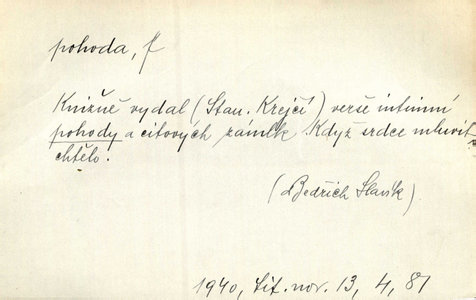 pohoda, f
Knižně vydal (Stan. Krejčí) verše intimní
pohody a citových zámlk Když srdce mluvit
chtělo.
(Bedřich Slavík)
1940, Lit. nov. 13, 4, 81